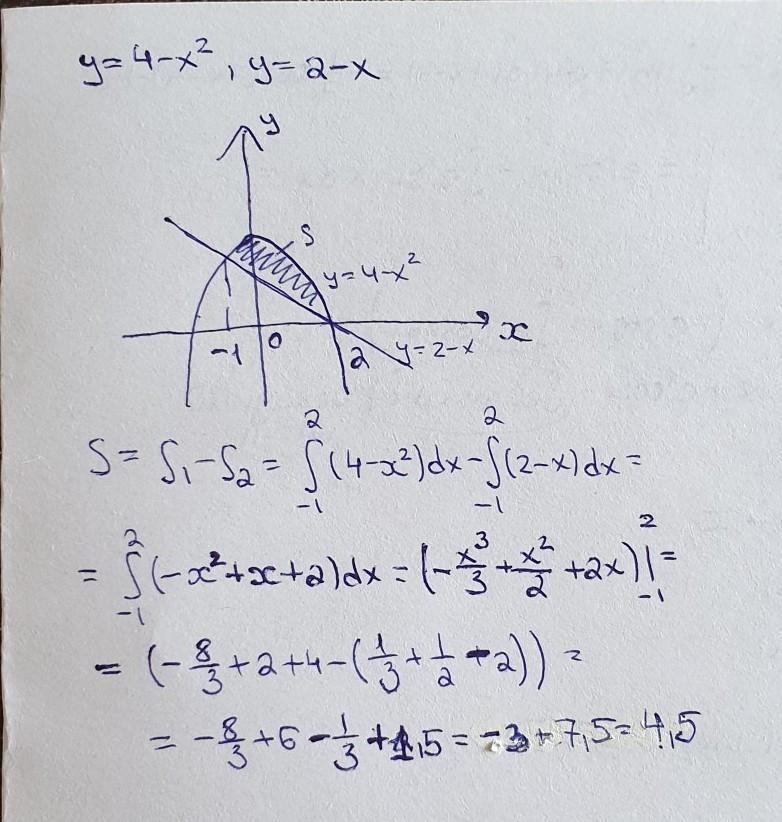 y = 4 - x², y = 2 - x
y
S
y = 4 - x²
x
-1 0 2 y = 2 - x
S = S₁ - S₂ = ∫₋₁² (4 - x²) dx - ∫₋₁² (2 - x) dx =
= ∫₋₁² (-x² + x + 2) dx = (-x³/3 + x²/2 + 2x) |₋₁² =
= (-8/3 + 2 + 4 - (1/3 + 1/2 - 2)) =
= -8/3 + 6 - 1/3 + 1,5 = -3 + 7,5 = 4,5